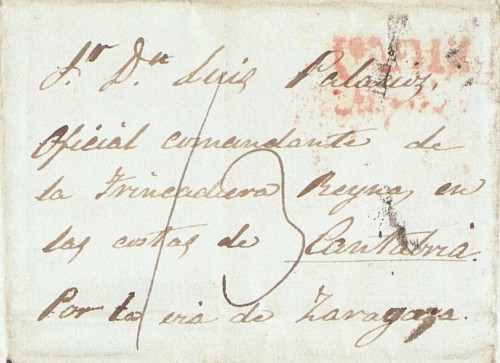 Sr Dn Luis Palacios,
Oficial comandante de
la Trincadura Reyna en
las costas de Cantabria.
Por la via de Zaragoza.
13